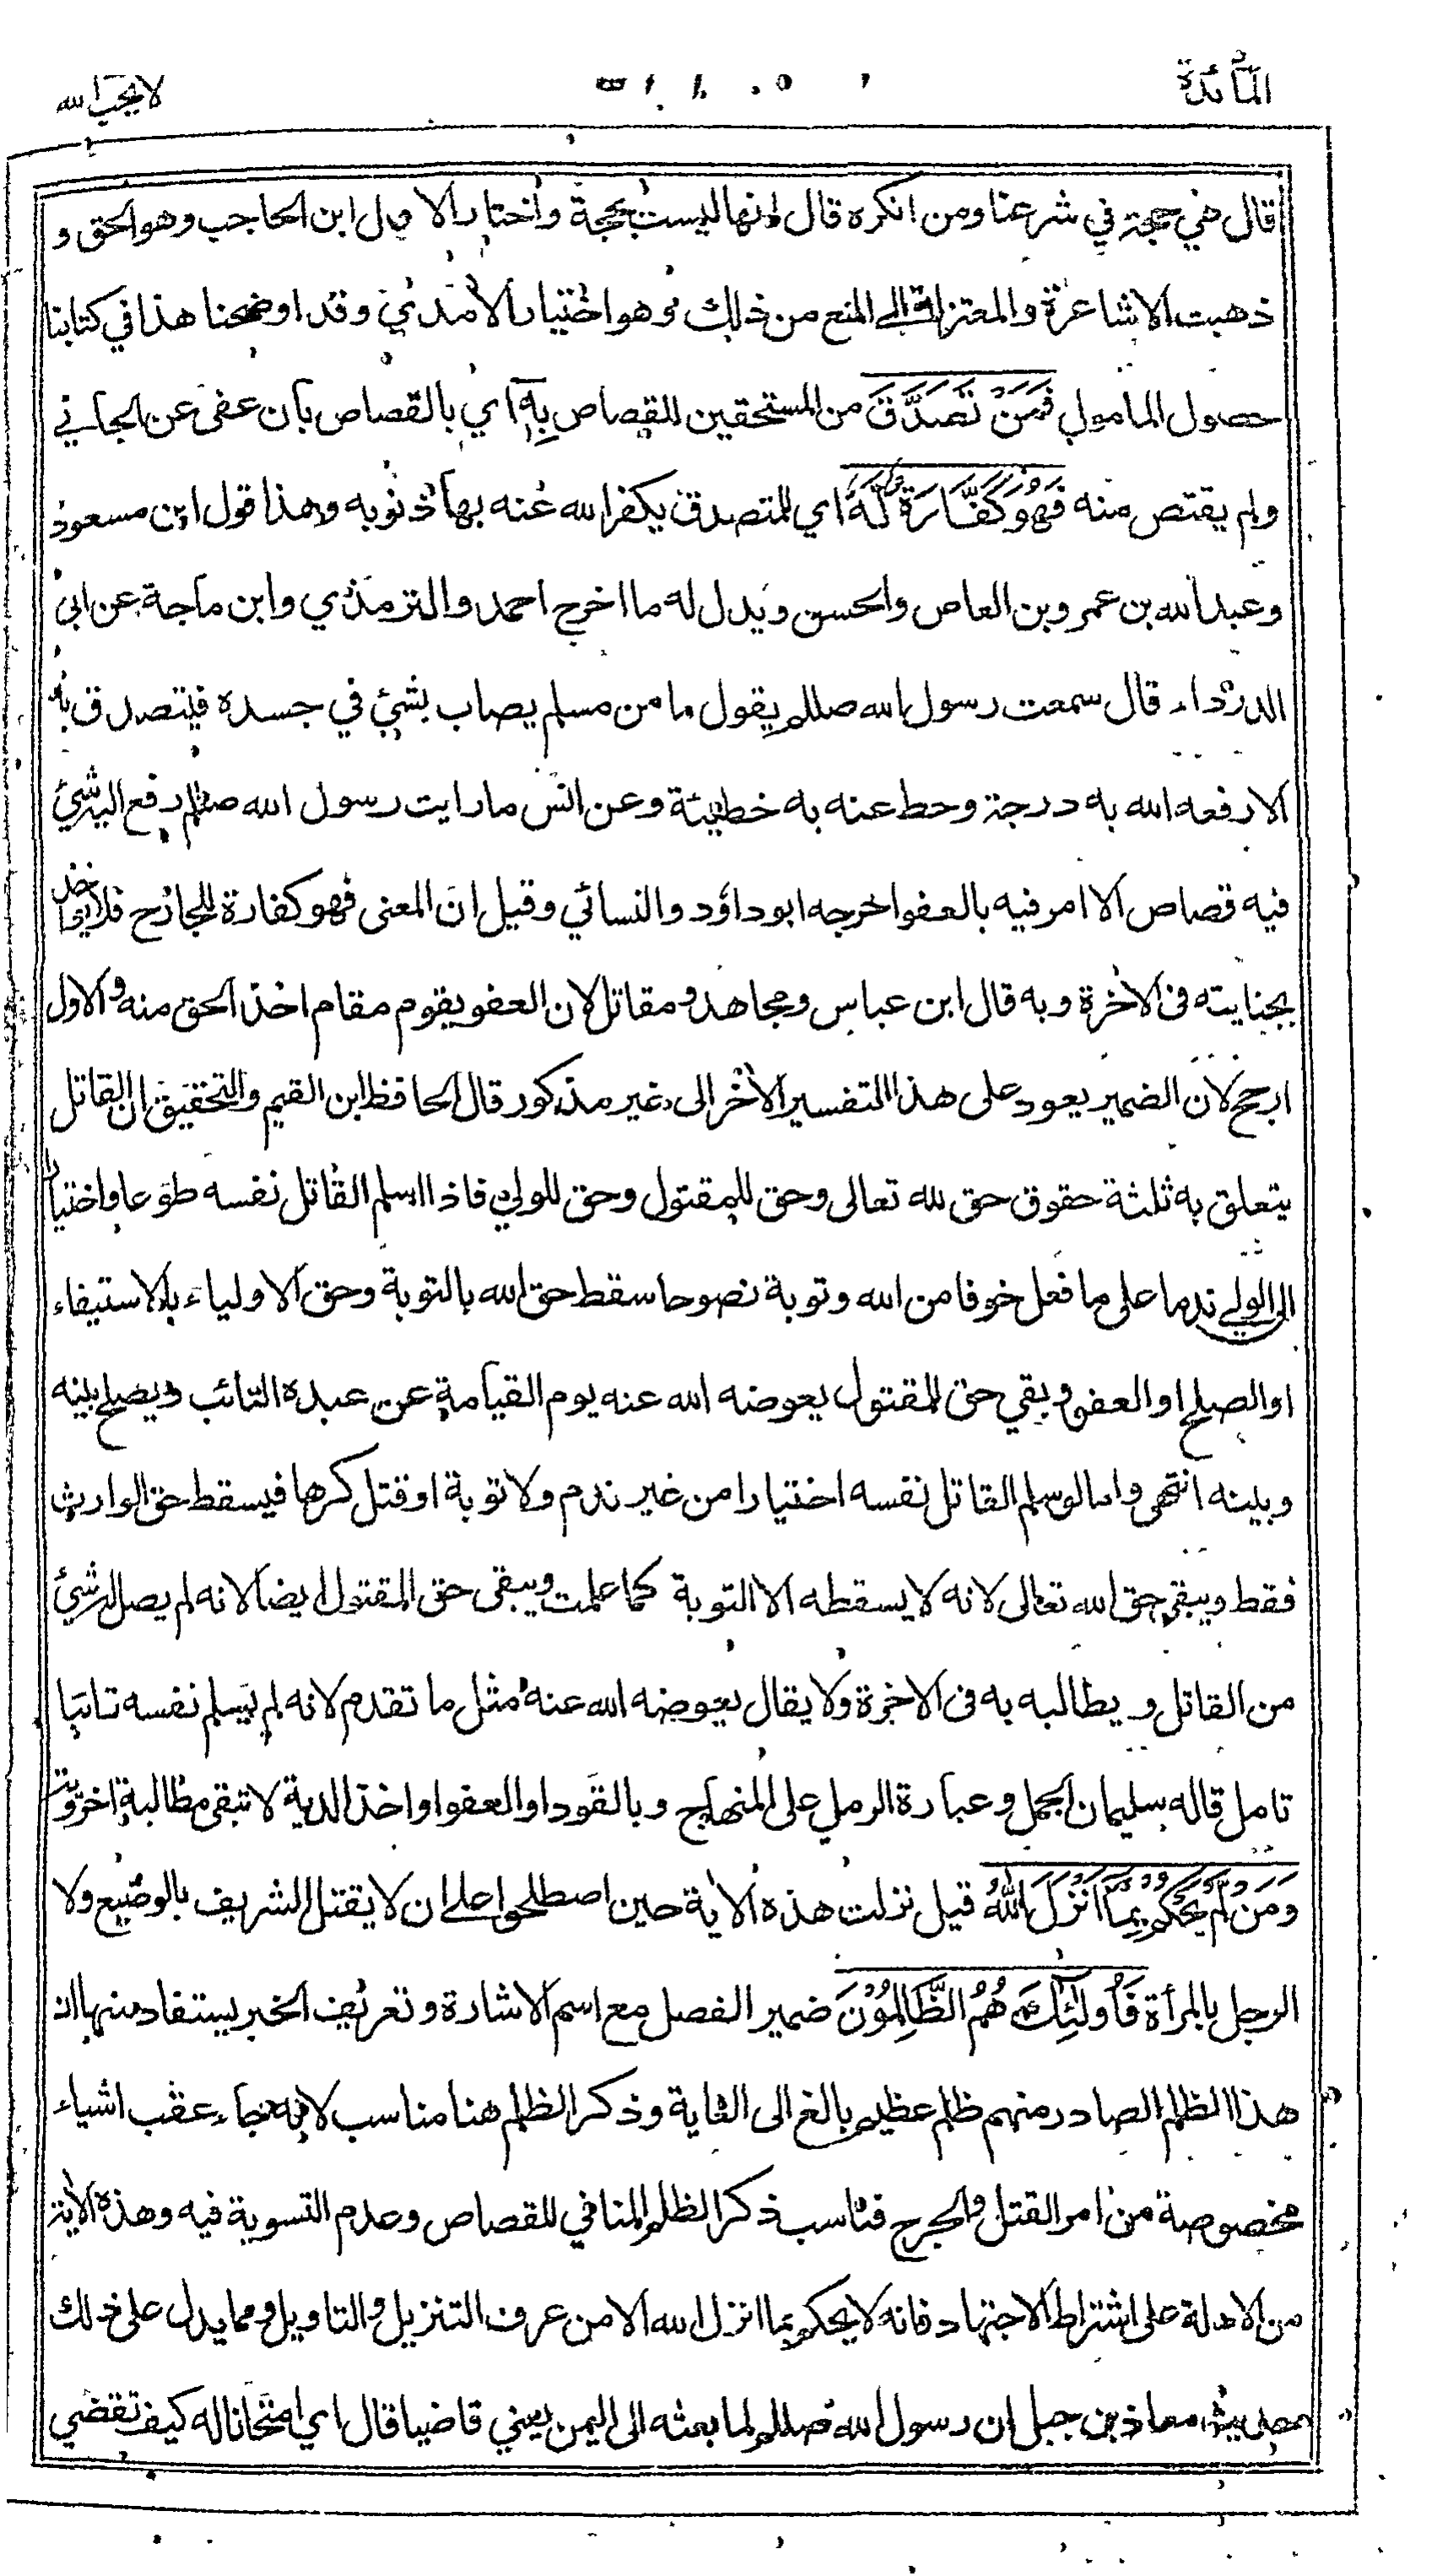 المائدة
لا يحب الله
قال هي حجة في شرعنا ومن انكره قال انها ليست بحجة واختار الاول ابن الحاجب وهو الحق و
ذهبت الاشاعرة والمعتزلة الى المنع من ذلك وهو اختيار الامدي وقد اوضحنا هذا في كتابنا
حصول المامول فَمَنْ تَصَدَّقَ من المستحقين للقصاص بِهٖ اي بالقصاص بان عفى عن الجاني
ولم يقتص منه فَهُوَ كَفَّارَةٌ لَّهٗ اي للمتصدق يكفر الله عنه بها ذنوبه وبهذا قول ابن مسعود
وعبد الله بن عمرو بن العاص والحسن ويدل له ما اخرج احمد والترمذي وابن ماجة عن ابى
الدرداء قال سمعت رسول الله صللم يقول ما من مسلم يصاب بشئ في جسده فيتصدق به
الا رفعه الله به درجة وحط عنه به خطيئة وعن انس ما رايت رسول الله صللم رفع اليه شئ
فيه قصاص الا امر فيه بالعفو اخرجه ابو داؤد والنسائي وقيل ان المعنى فهو كفارة للجارح فلا يؤاخذ
بجنايته فى الاخرة وبه قال ابن عباس ومجاهد ومقاتل لان العفو يقوم مقام اخذ الحق منه والاول
ارجح لان الضمير يعود على هذا التفسير الأخر الى غير مذكور قال الحافظ ابن القيم والتحقيق ان القاتل
يتعلق به ثلثة حقوق حق لله تعالى وحق للمقتول وحق للولي فاذا اسلم القاتل نفسه طوعا واختيارا
الى الولي ندما على ما فعل خوفا من الله وتوبة نصوحا سقط حق الله بالتوبة وحق الاولياء بالاستيفاء
او الصلح او العفو وبقي حق للمقتول يعوضه الله عنه يوم القيامة عن عبده التائب ويصلح بينه
وبينه انتهى واما لو سلم القاتل نفسه اختيارا من غير ندم ولا توبة او قتل كرها فيسقط حق الوارث
فقط ويبقى حق الله تعالى لانه لا يسقطه الا التوبة كما علمت ويبقى حق المقتول ايضا لانه لم يصل له شئ
من القاتل ويطالبه به فى الاخرة ولا يقال يعوضه الله عنه مثل ما تقدم لانه لم يسلم نفسه تائبا
تامل قاله سليمان الجمل وعبارة الرملي على المنهاج وبالقود او العفو او اخذ الدية لا تبقى مطالبة اخروية
وَمَنْ لَّمْ يَحْكُمْ بِمَآ اَنْزَلَ اللّٰهُ قيل نزلت هذه الأية حين اصطلحوا على ان لا يقتل الشريف بالوضيع ولا
الرجل بالمرأة فَاُولٰٓئِكَ هُمُ الظَّالِمُوْنَ ضمير الفصل مع اسم الاشارة وتعريف الخبر يستفاد منها ان
هذا الظلم الصادر منهم ظلم عظيم بالغ الى الغاية وذكر الظلم هنا مناسب لانه جاء عقب اشياء
مخصوصة من امر القتل والجرح فناسب ذكر الظلم المنافي للقصاص وعدم التسوية فيه وهذه الأية
من الادلة على اشتراط الاجتهاد فانه لا يحكم بما انزل الله الا من عرف التنزيل والتاويل ومما يدل على ذلك
حديث معاذ بن جبل ان رسول الله صللم لما بعثه الى اليمن يعني قاضيا قال اي امتحانا له كيف تقضي